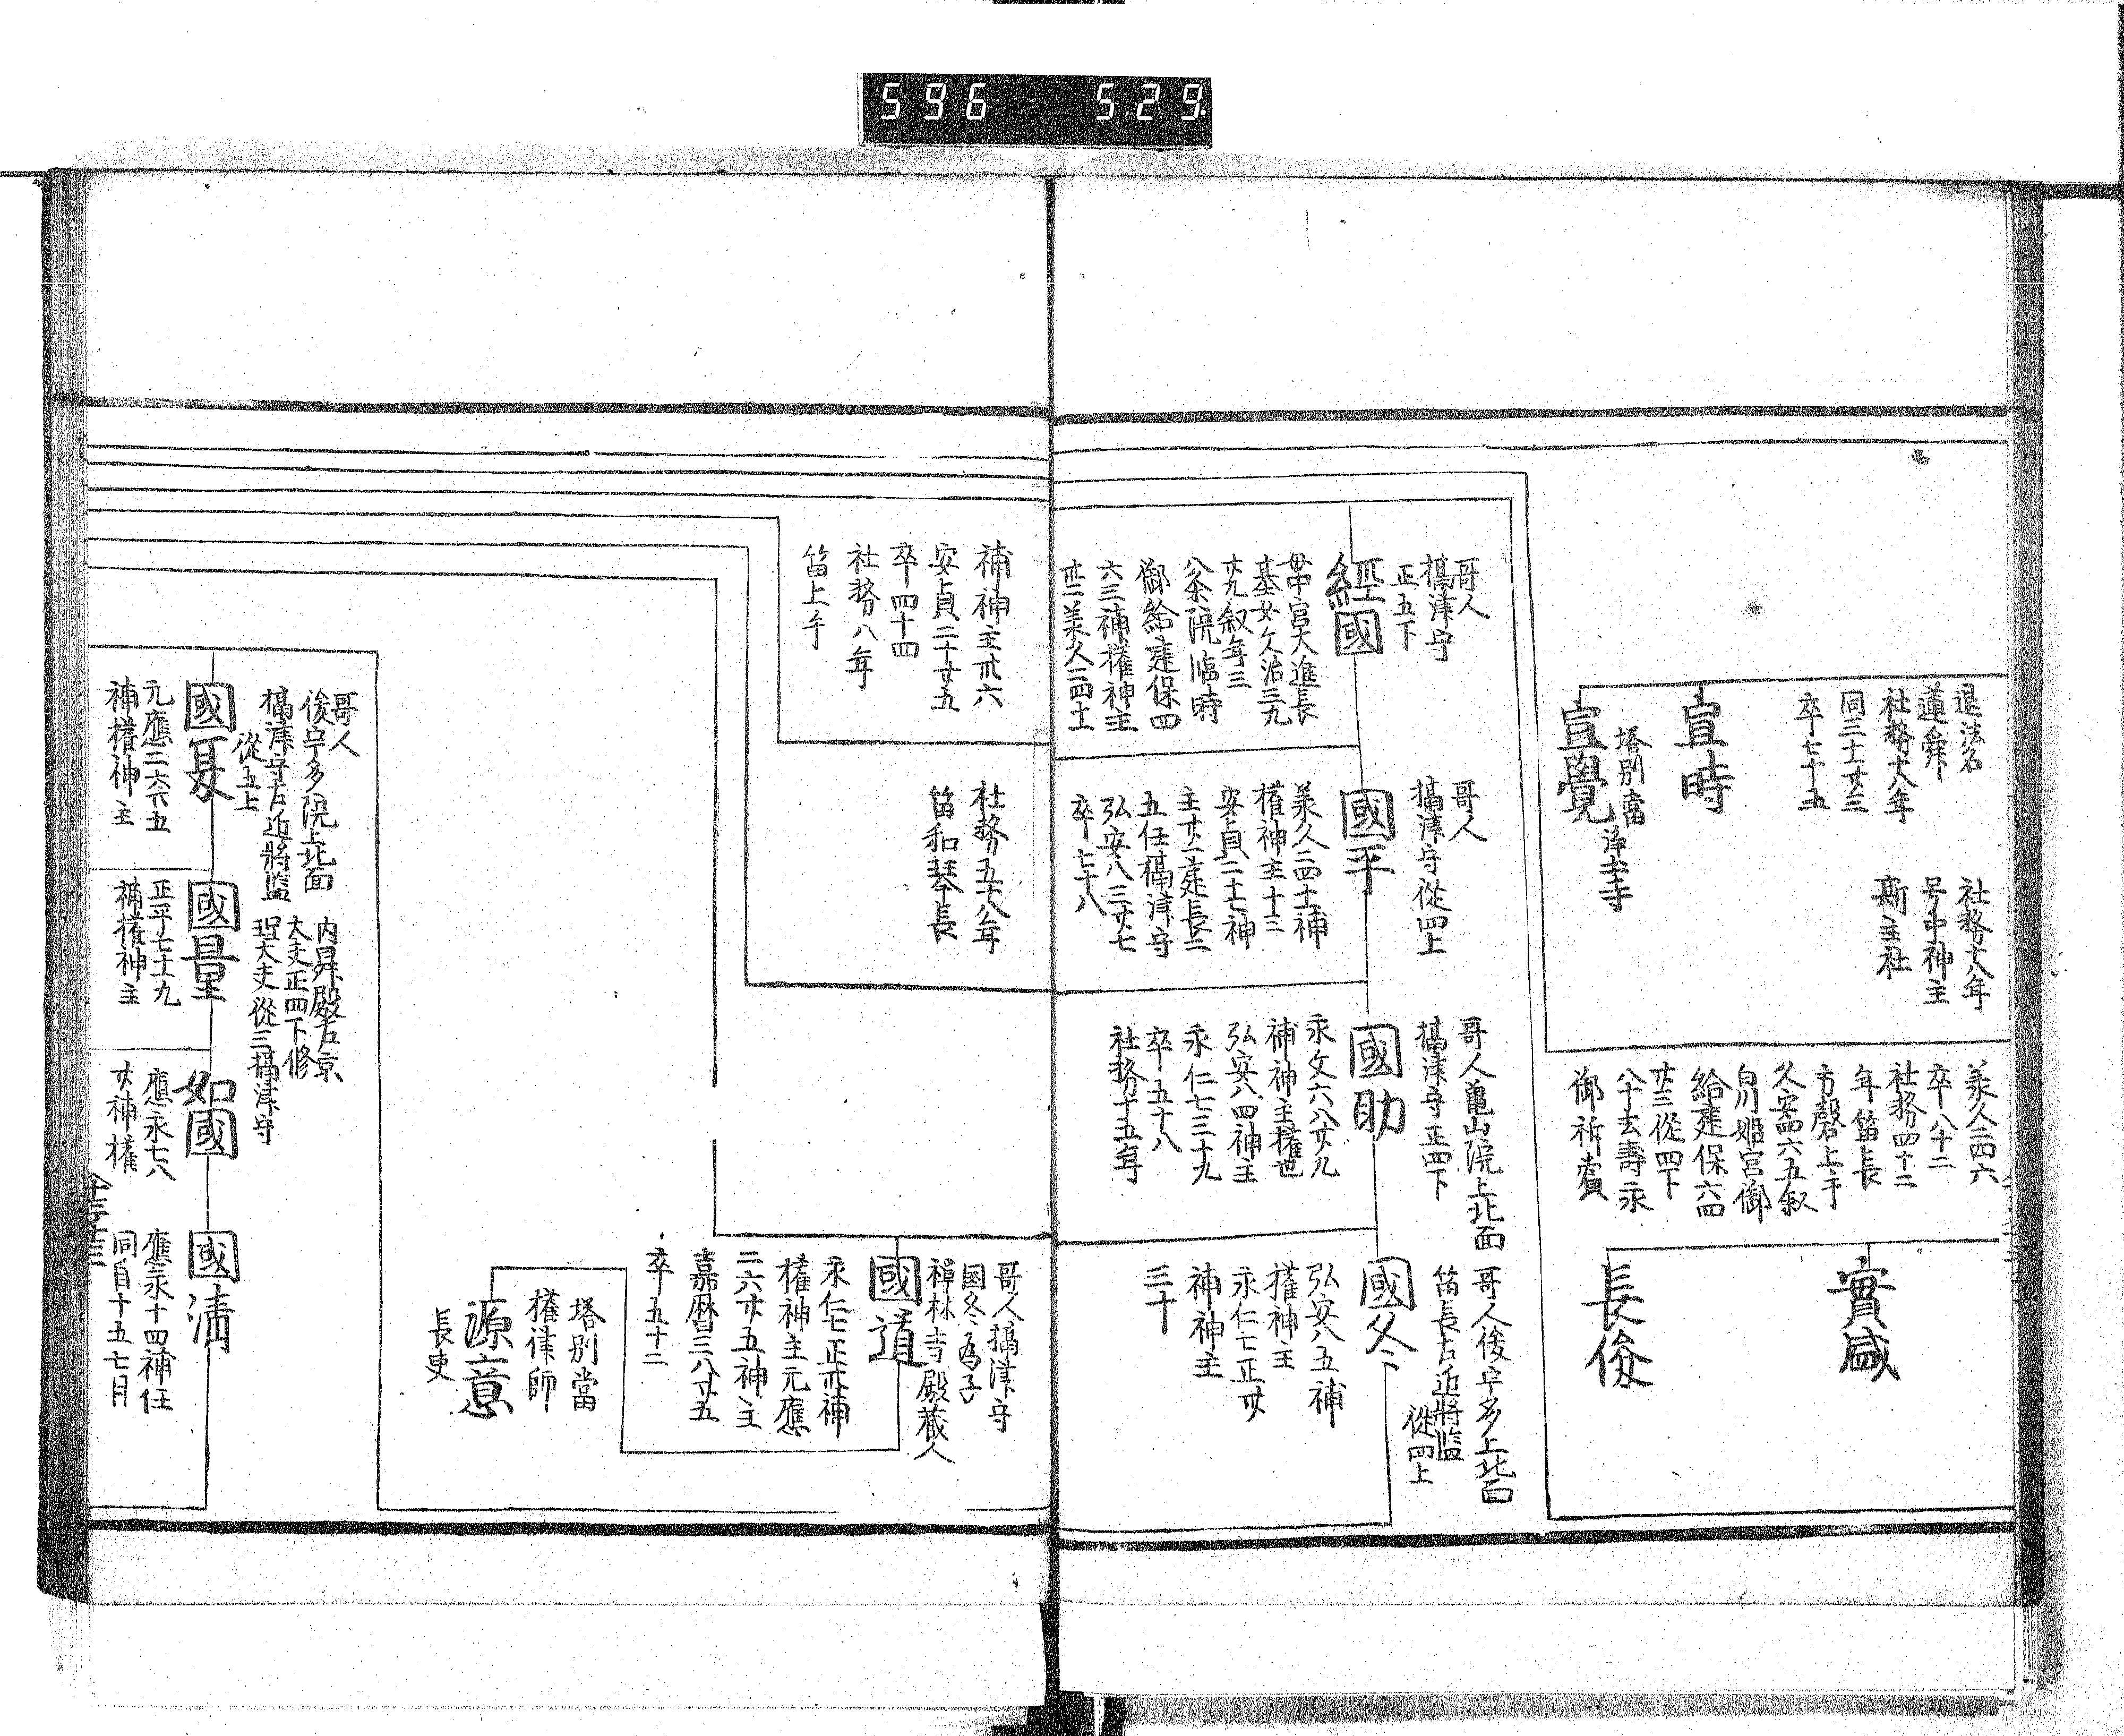 596 529
退法名
蓮舜
社務十八年
同三十廿三
卒七十五
宣時
塔別當
宣覺
浄土寺
社務十八年
号中神主
斯主社
承久二四六
卒八十二
社務四十二
年笛長
方磬上手
久安四六五叙
白川姫宮御
給建保六四
廿三從四下
八十去壽永
御祈賞
實盛
長俊
哥人
攝津守
正五下
經國
母中宮大進長
基女文治三九
廿九叙年三
八条院臨時
御給建保四
六三補權神主
廿二承久二四十
哥人
攝津守從四上
國平
承久二四十補
權神主十三
安貞二十七神
主廿二建長二
五任攝津守
弘安八三廿七
卒七十八
哥人亀山院上北面
攝津守正四下
國助
永文六八廿九
補神主權世
弘安八四神主
永仁七三十九
卒五十八
社務十五年
哥人後宇多上北面
笛長右近將監
從四上
國冬
弘安八五補
權神主
永仁七正廿
補神主
三十
補神主卅六
安貞二十廿五
卒四十四
社務八年
笛上手
社務五十八年
笛和琴長
哥人攝津守
国冬為子
禅林寺殿蔵人
國道
永仁七正卅補
權神主元應
二六廿五神主
嘉暦三八廿五
卒五十二
塔別當
權律師
源意
長吏
哥人
後宇多院上北面
攝津守右近將監
從五上
内昇殿右京
大夫正四下修
理大夫從三攝津守
國夏
元應二六廿五
補權神主
國量
正平七十一九
補權神主
如國
應永七八
廿補權
國清
應永十四補任
同自十五七月